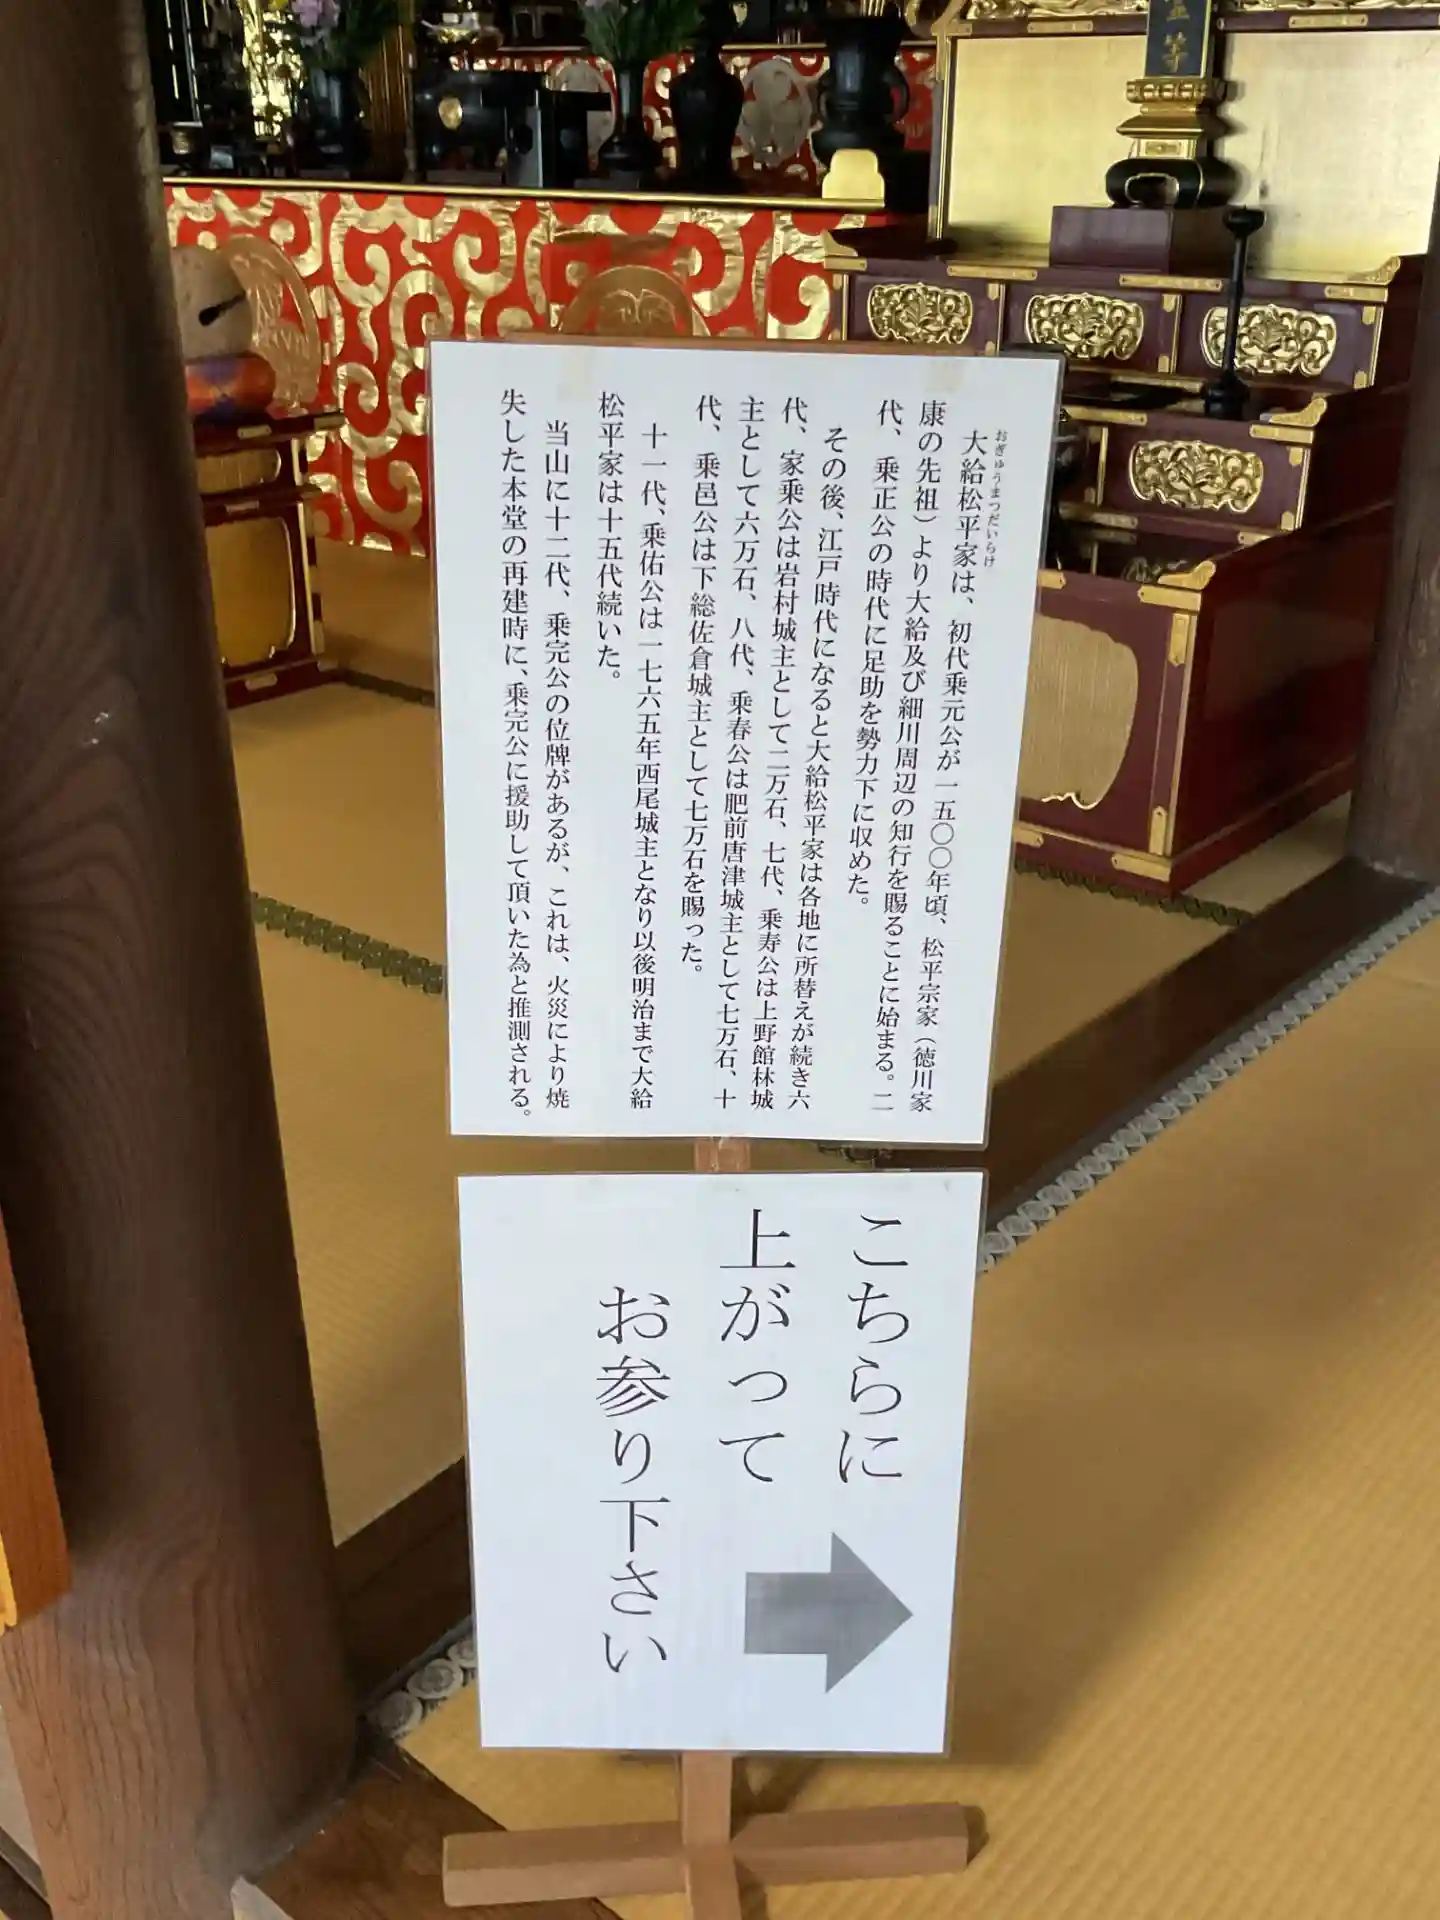 大給松平家は、初代乗元公が一五〇〇年頃、松平宗家（徳川家
おぎゅうまつだいらけ
康の先祖）より大給及び細川周辺の知行を賜ることに始まる。二
代、乗正公の時代に足助を勢力下に収めた。
その後、江戸時代になると大給松平家は各地に所替えが続き六
代、家乗公は岩村城主として二万石、七代、乗寿公は上野館林城
主として六万石、八代、乗春公は肥前唐津城主として七万石、十
代、乗邑公は下総佐倉城主として七万石を賜った。
十一代、乗佑公は一七六五年西尾城主となり以後明治まで大給
松平家は十五代続いた。
当山に十二代、乗完公の位牌があるが、これは、火災により焼
失した本堂の再建時に、乗完公に援助して頂いた為と推測される。
こちらに
上がって
お参り下さい